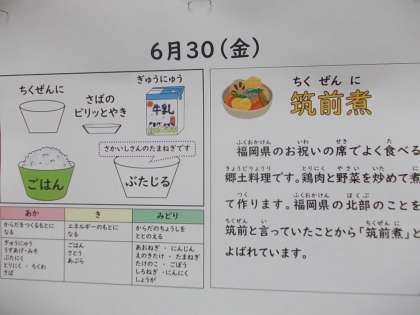 6月30(金)
ちくぜんに
さばの
ピリッとやき
ぎゅうにゅう
牛乳
さかいしさんのたまねぎです
ごはん
ぶたじる
あか
き
みどり
からだをつくるもとに
なる
エネルギーのもとに
なる
からだのちょうしを
ととのえる
ぎゅうにゅう
うすあげ・みそ
ぶたにく
とりにく・ちくわ
さば
ごはん
さとう
あぶら
あおねぎ・にんじん
えのきたけ・たまねぎ
たけのこ・ごぼう
しろねぎ・にんにく
しょうが
ちくぜんに
筑前煮
ふくおかけん いわ せき た
福岡県のお祝いの席でよく食べる
きょうどりょうり とりにく やさい いた に
郷土料理です。鶏肉と野菜を炒めて煮
つく ふくおかけん ほくぶ
て作ります。福岡県の北部のことを
ちくぜん い ちくぜんに
筑前と言っていたことから「筑前煮」と
よばれています。